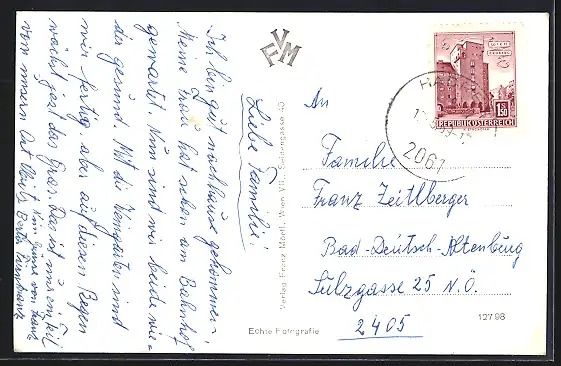 Liebe Familie!
Ich bin gut nachhause gekommen!
Meine Frau hat schon am Bahnhof
gewartet. Nun sind wir beide wie-
der gesund. Mit die Weingärten sind
wir fertig aber auf diesen Regen
wächst jast das Gras. Das ist uns ein
von unsern Ort
FVM
Verlag Franz Mörtl, Wien VII, Seidengasse 40
Echte Fotografie
12798
WIEN
1.50
REPUBLIK ÖSTERREICH
2061
An
Familie
Franz Zeitlberger
Bad-Deutsch-Altenburg
Sulzgasse 25 N.Ö.
2405